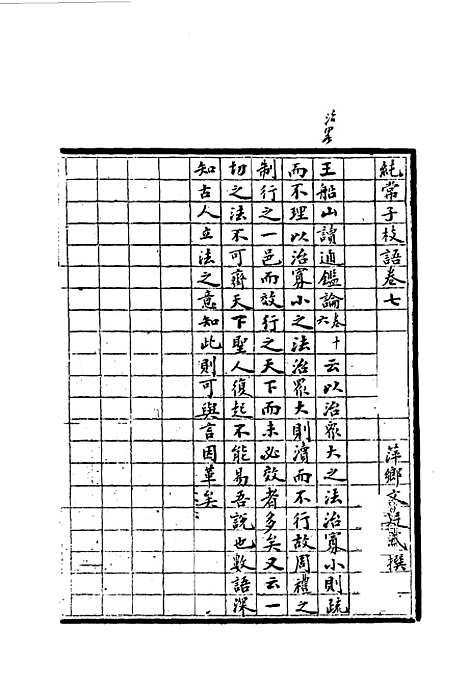 純常子枝語卷七
萍鄉文廷式撰
王船山讀通鑑論卷十六云以治眾大之法治寡小則疏
而不理以治寡小之法治眾大則瀆而不行故周禮之
制行之一邑而效行之天下而未必效者多矣又云一
切之法不可齊天下聖人復起不能易吾說也數語深
知古人立法之意知此則可與言因革矣